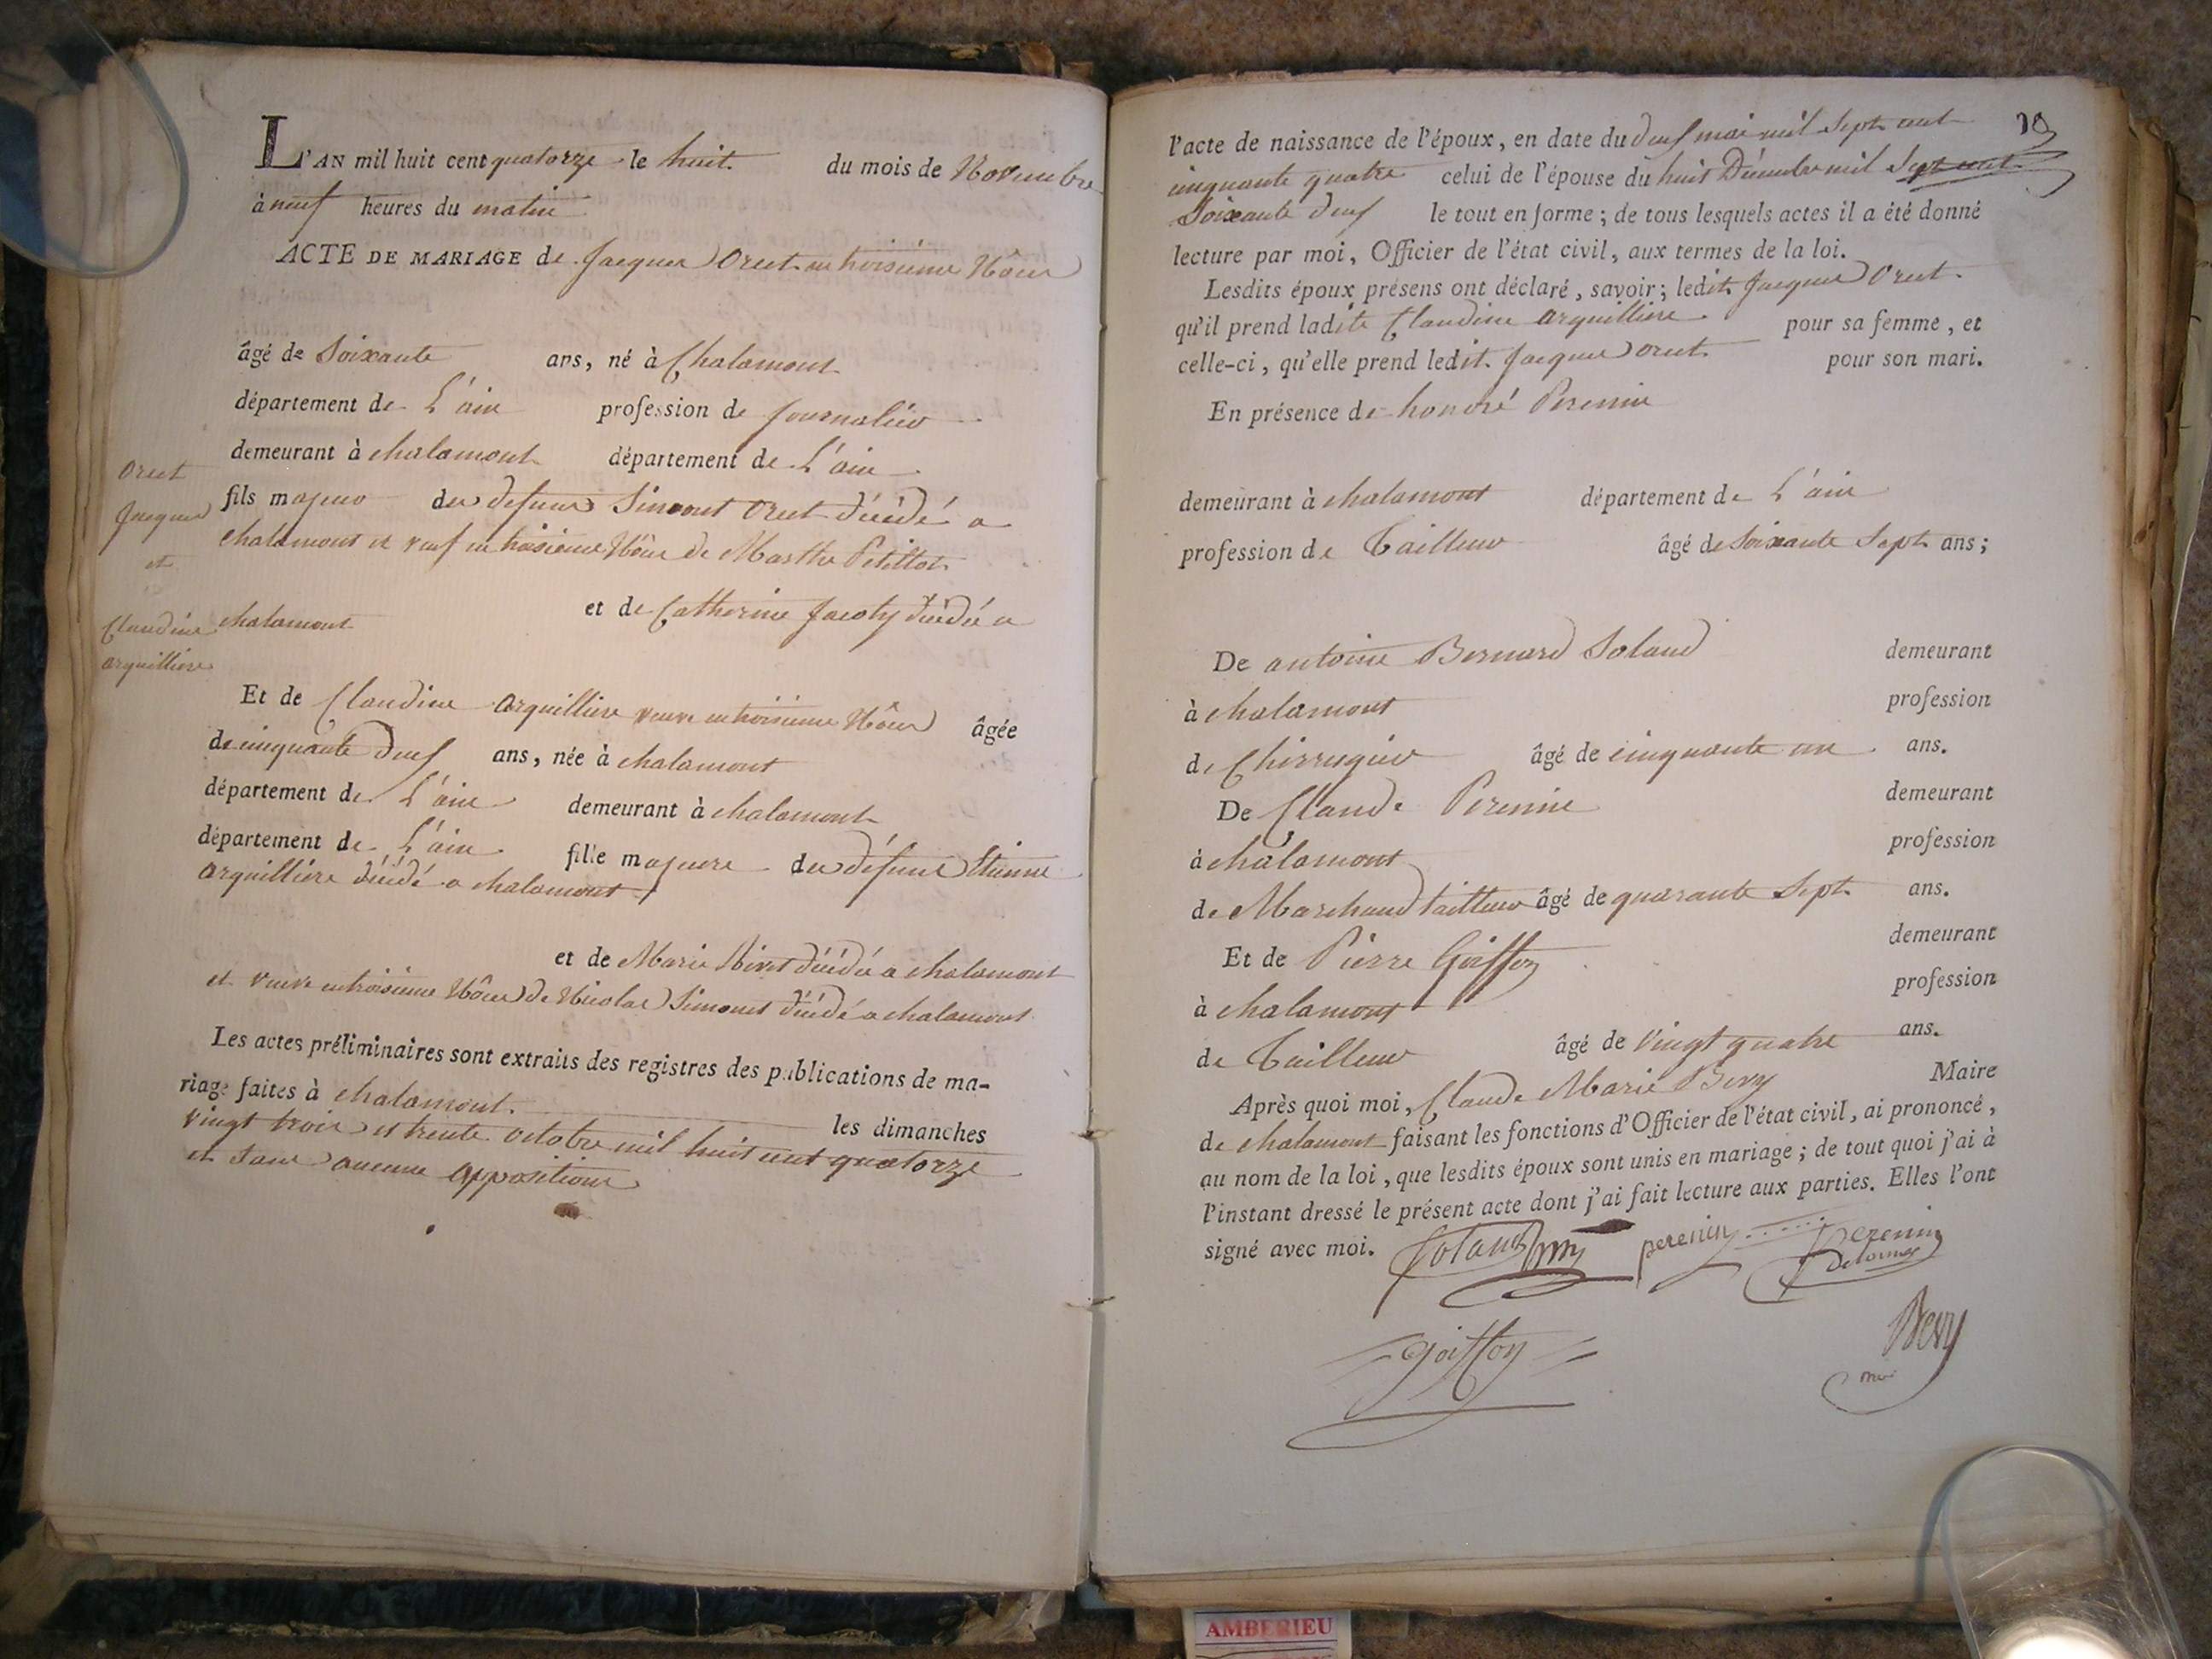 L'AN mil huit cent quatorze le huit du mois de Novembre
à neuf heures du matin
ACTE DE MARIAGE de Jacques Orset en troisieme Nôces
âgé de Soixante ans, né à Chalamont
département de L'ain profession de Journalier
demeurant à chalamont département de L'ain
Orset
Jacques
et
Claudine
arquilliere
fils majeur de defunt Simont Orset décédé a
chalamont et veuf en troisieme Nôces de Marthe Petillot
et de Catherine Jacoty décédée a
chalamont
Et de Claudine arquilliere veuve en troisieme Nôces âgée
de cinquante deux ans, née à chalamont
département de L'ain demeurant à chalamont
département de L'ain fille majeure de défunt Etienne
arquilliere décédé a chalamont
et de Marie décédée a chalamont
et veuve en troisieme Nôces de Nicolas Simonet décédé a chalamont
Les actes préliminaires sont extraits des registres des publications de ma-
riage faites à chalamont. les dimanches
vingt trois et trente octobre mil huit cent quatorze
et sans aucune oppositions
19
l'acte de naissance de l'époux, en date du deux mai mil sept cent
cinquante quatre celui de l'épouse du huit Décembre mil sept cent
Soixante deux le tout en forme; de tous lesquels actes il a été donné
lecture par moi, Officier de l'état civil, aux termes de la loi.
Lesdits époux présens ont déclaré, savoir; ledit Jacques Orset
qu'il prend ladite Claudine arquilliere pour sa femme, et
celle-ci, qu'elle prend ledit Jacques orset pour son mari.
En présence de honoré Perenin
demeurant à chalamont département de L'ain
profession de Tailleur âgé de Soixante Sept ans;
De antoine Bernard Soland demeurant
à chalamont profession
de Chirrugier âgé de cinquante un ans.
De Claude Perenin demeurant
à chalamont profession
de Marchand tailleur âgé de quarante Sept ans.
Et de Pierre Goiffon demeurant
à chalamont profession
de Tailleur âgé de vingt quatre ans.
Après quoi moi, Claude Marie Bevy Maire
de chalamont faisant les fonctions d'Officier de l'état civil, ai prononcé,
au nom de la loi, que lesdits époux sont unis en mariage; de tout quoi j'ai à
l'instant dressé le présent acte dont j'ai fait lecture aux parties. Elles l'ont
signé avec moi. Soland perenin Perenin
Delorme
goiffon
Bevy
AMBERIEU